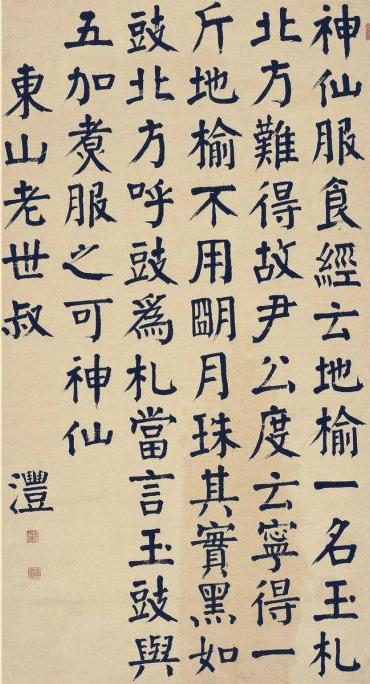 神仙服食經云地榆一名玉札
北方難得故尹公度云寧得一
斤地榆不用朙月珠其實黑如
豉北方呼豉為札當言玉豉與
五加煑服之可神仙
東山老世叔
灃